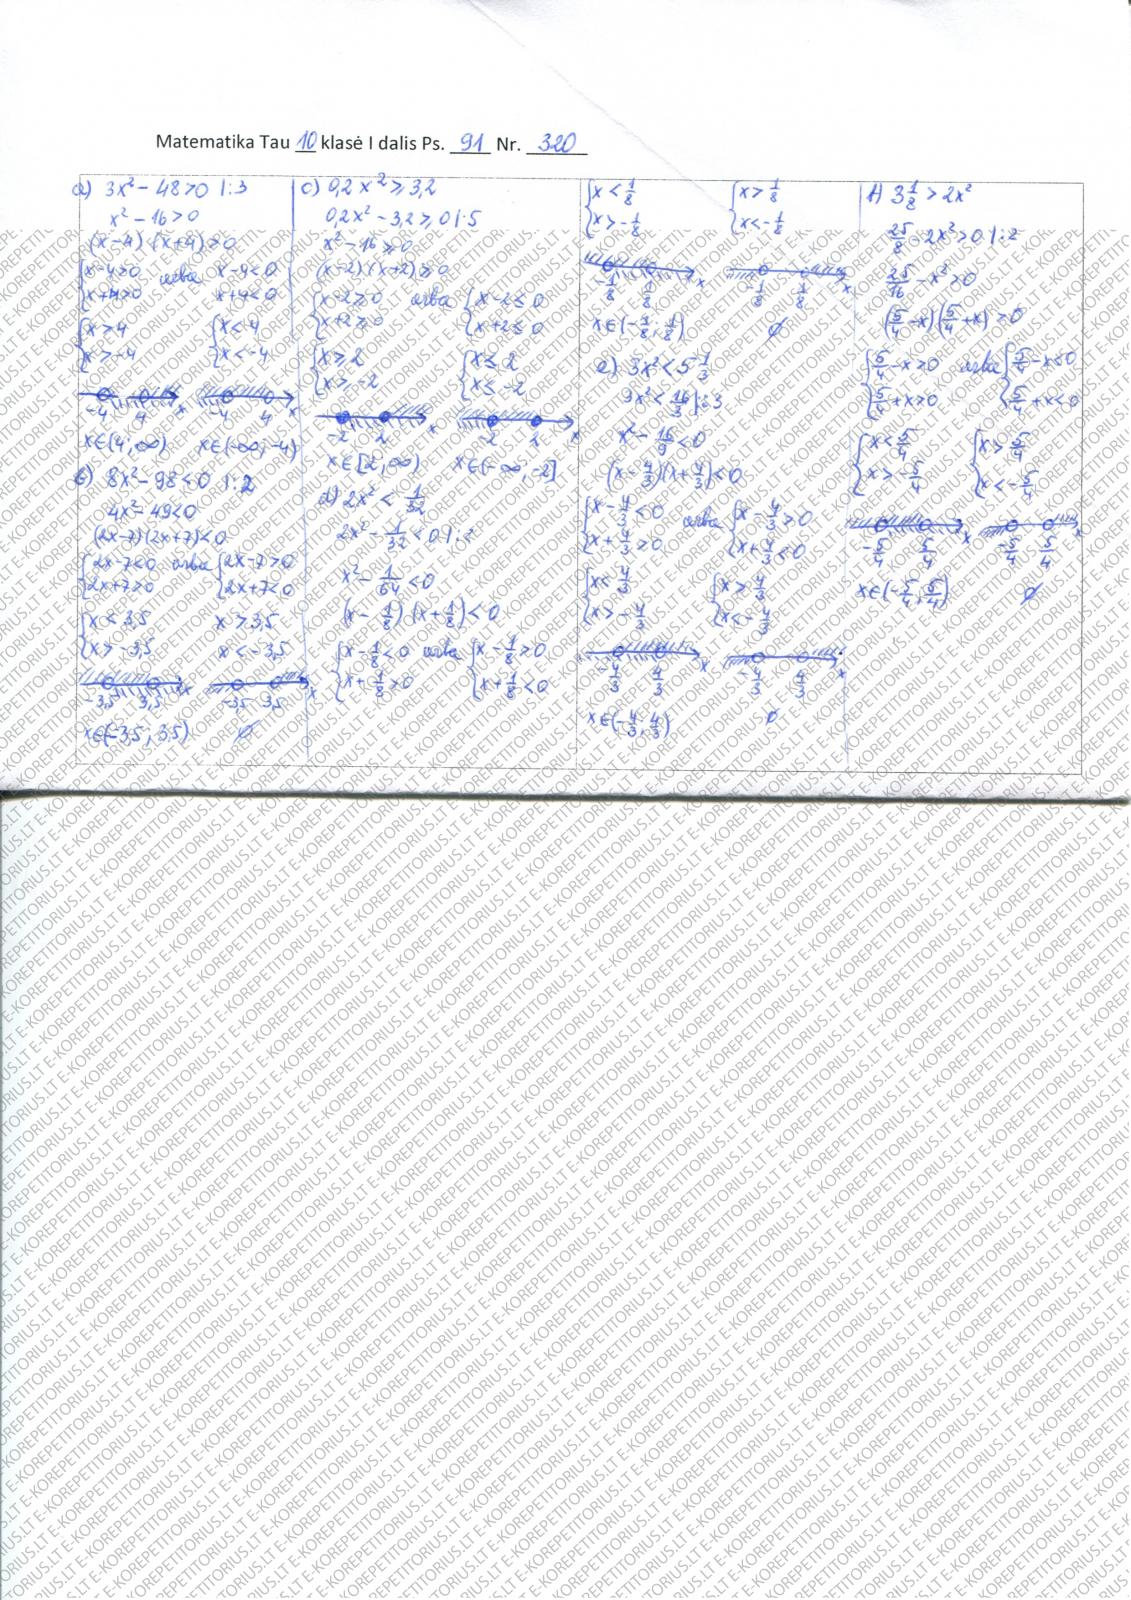 Matematika Tau 10 klasė I dalis Ps. 91 Nr. 320
a) 3x² - 48 > 0 |:3
x² - 16 > 0
(x-4)(x+4) > 0
{x-4>0 arba x-4<0
{x+4>0 x+4<0
{x>4 {x<4
{x>-4 {x<-4
-4 4 x -4 4 x
x∈(4;∞) x∈(-∞;-4)
b) 8x² - 98 < 0 |:2
4x² - 49 < 0
(2x-7)(2x+7) < 0
{2x-7<0 arba {2x-7>0
{2x+7>0 {2x+7<0
{x<3,5 x>3,5
{x>-3,5 x<-3,5
-3,5 3,5 x -3,5 3,5 x
x∈(-3,5; 3,5) ∅
c) 0,2x² ⩾ 3,2
0,2x² - 3,2 ⩾ 0 |·5
x² - 16 ⩾ 0
(x-2)(x+2) ⩾ 0
{x-2⩾0 arba {x-2≤0
{x+2⩾0 {x+2≤0
{x⩾2 {x≤2
{x⩾-2 {x≤-2
-2 2 x -2 2 x
x∈[2;∞) x∈(-∞;-2]
d) 2x² < 1/32
2x² - 1/32 < 0 |:2
x² - 1/64 < 0
(x - 1/8)(x + 1/8) < 0
{x - 1/8 < 0 arba {x - 1/8 > 0
{x + 1/8 > 0 {x + 1/8 < 0
{x < 1/8 {x > 1/8
{x > -1/8 {x < -1/8
-1/8 1/8 x -1/8 1/8 x
x∈(-1/8; 1/8) ∅
e) 3x² < 5 1/3
3x² < 16/3 |:3
x² - 16/9 < 0
(x - 4/3)(x + 4/3) < 0
{x - 4/3 < 0 arba {x - 4/3 > 0
{x + 4/3 > 0 {x + 4/3 < 0
{x < 4/3 {x > 4/3
{x > -4/3 {x < -4/3
-4/3 4/3 x -4/3 4/3 x
x∈(-4/3; 4/3) ∅
f) 3 1/8 > 2x²
25/8 - 2x² > 0 |:2
25/16 - x² > 0
(5/4 - x)(5/4 + x) > 0
{5/4 - x > 0 arba {5/4 - x < 0
{5/4 + x > 0 {5/4 + x < 0
{x < 5/4 {x > 5/4
{x > -5/4 {x < -5/4
-5/4 5/4 x -5/4 5/4 x
x∈(-5/4; 5/4) ∅
E-KOREPETITORIUS.LT